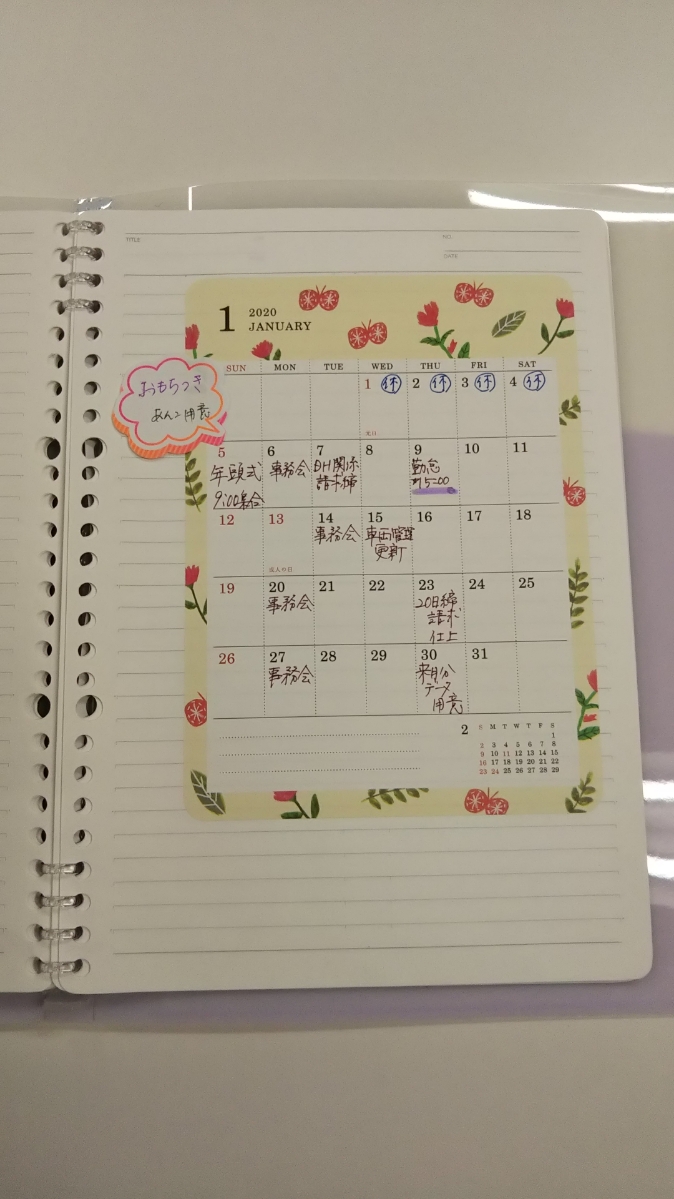 TITLE
NO.
DATE
1 2020
JANUARY
SUN MON TUE WED THU FRI SAT
1 休 2 休 3 休 4 休
元日
おもちつき
あんこ用意
5 6 7 8 9 10 11
年頭式 事務会 DH関係 勤怠
9:00集合 請求締 〆15:00
12 13 14 15 16 17 18
事務会 車両管理
更新
成人の日
19 20 21 22 23 24 25
事務会 20日締
請求
仕上
26 27 28 29 30 31
事務会 来月分
データ
用意
2 S M T W T F S
1
2 3 4 5 6 7 8
9 10 11 12 13 14 15
16 17 18 19 20 21 22
23 24 25 26 27 28 29